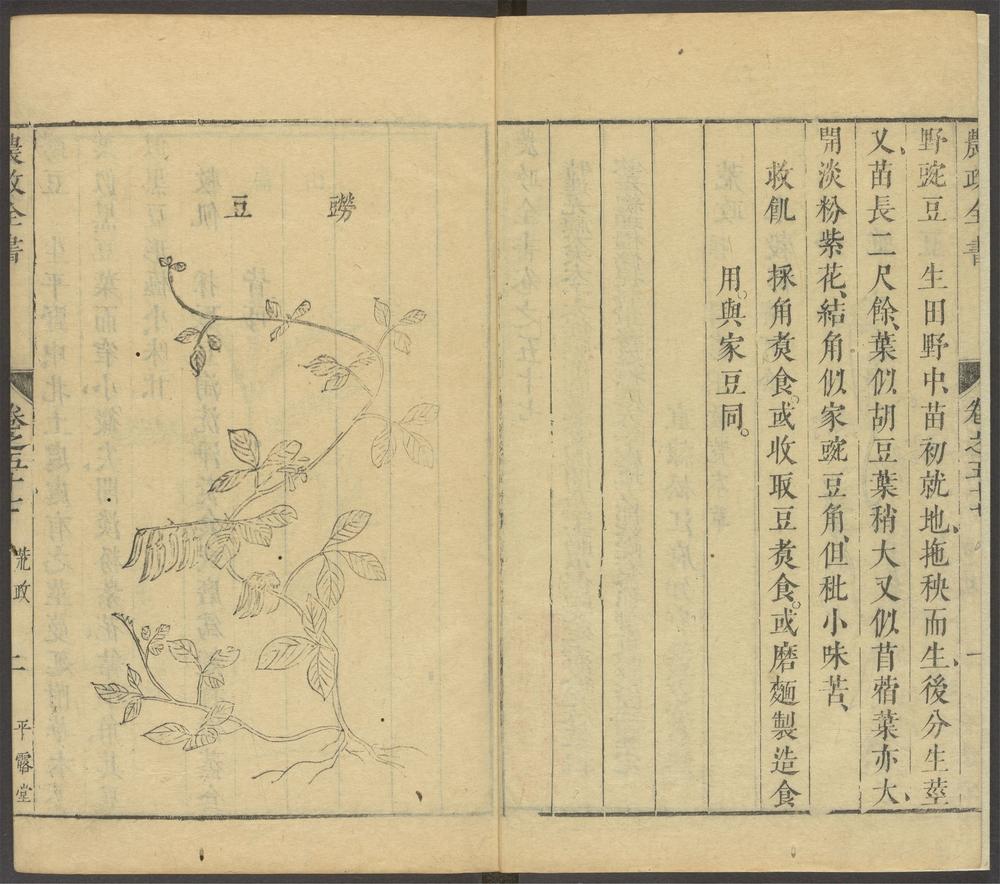 農政全書
卷之五十七
一
野豌豆 生田野中、苗初就地、拖秧而生、後分生莖
又、苗長二尺餘、葉似胡豆葉稍大又似苜蓿葉亦大、
開淡粉紫花、結角似家豌豆角、但秕小味苦、
救飢 採角煑食。或收取豆煑食。或磨麵製造食
用。與家豆同。
䝁豆
農政全書
卷之五十七
荒政
二
平露堂